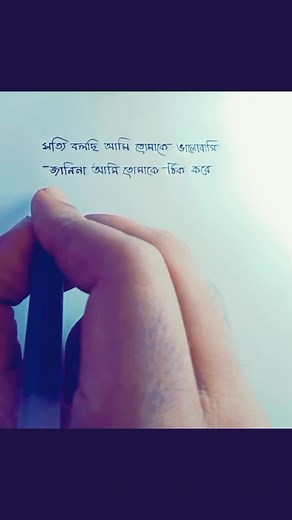 সত্যি বলছি আমি তোমাকে ভালোবাসি
জানিনা আমি তোমাকে ঠিক করে